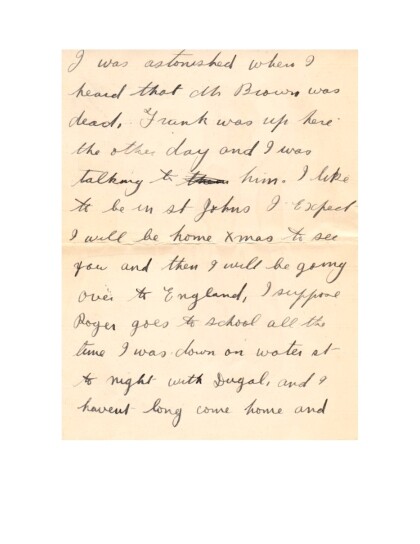 I was astonished when I
heard that Mr Brown was
dead, Frank was up here
the other day and I was
talking to them him. I like
to be in st Johns I Expect
I will be home Xmas to see
you and then I will be going
over to England, I suppose
Roger goes to school all the
time I was down on water st
to night with Dugal, and I
havent long come home and